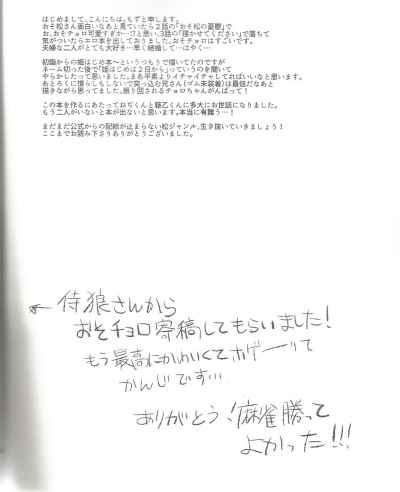 はじめまして、こんにちは。もずと申します。
おそ松さん面白いなあと見ていたら２話の「おそ松の憂鬱」で
お、おそチョロ可愛すぎか…!?と思い、3話の「寝かせてください」で落ちて
気がついたらエロ本を出しておりました。おそチョロはすごいです。
夫婦な二人がとても大好き…早く結婚して…はやく…
初詣からの姫はじめ本〜というつもりで描いてたのですが
ネーム切った後で「姫はじめは２日から」っていうのを聞いて
やらかしたって思いました。まあ平素よりイチャイチャしてればいいなと思います。
あとろくに慣らしもしないで突っ込む兄さん（ゴム未装着）は最低だなあと
描きながら思ってました。振り回されるチョロちゃんがんばって！
この本を作るにあたってねぢくんと藤乙くんに多大にお世話になりました。
もう二人がいないと本が出ないと思います。本当に有難う…！
まだまだ公式からの配給が止まらない松ジャンル、生き抜いていきましょう！
ここまでお読み下さりありがとうございました。
← 侍狼さんから
おそチョロ寄稿してもらいました！
もう最高にかわいくてホゲーーッて
かんじです…
ありがとう！麻雀勝って
よかった!!!